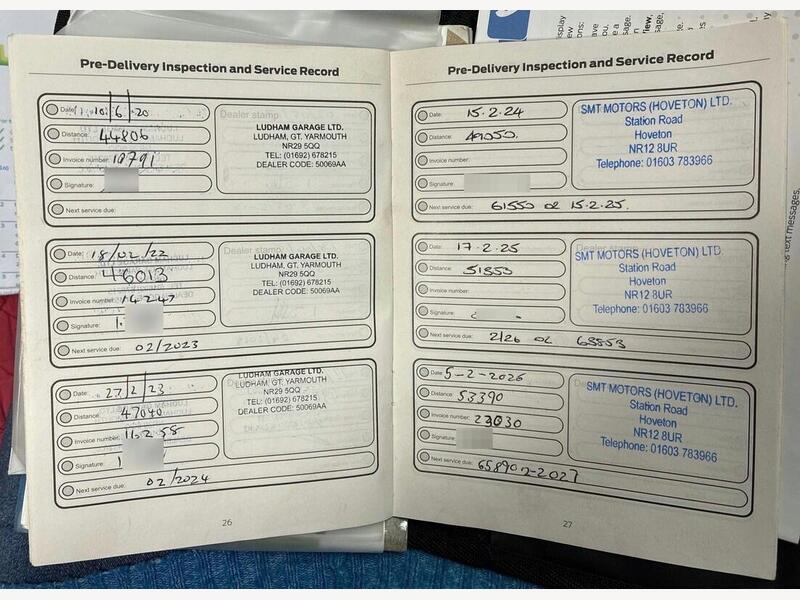 Pre-Delivery Inspection and Service Record
Date: 10/6/20
Distance: 44806
Invoice number: 18791
Signature:
Next service due:
Dealer stamp
LUDHAM GARAGE LTD.
LUDHAM, GT. YARMOUTH
NR29 5QQ
TEL: (01692) 678215
DEALER CODE: 50069AA
Date: 18/02/22
Distance: 46013
Invoice number: 14247
Signature:
Next service due: 02/2023
Dealer stamp
LUDHAM GARAGE LTD.
LUDHAM, GT. YARMOUTH
NR29 5QQ
TEL: (01692) 678215
DEALER CODE: 50069AA
Date: 27/2/23
Distance: 47040
Invoice number: 16258
Signature:
Next service due: 02/2024
LUDHAM GARAGE LTD.
LUDHAM, GT. YARMOUTH
NR29 5QQ
TEL: (01692) 678215
DEALER CODE: 50069AA
26
Pre-Delivery Inspection and Service Record
Date: 15.2.24
Distance: 49050
Invoice number:
Signature:
Next service due: 61550 or 15.2.25.
SMT MOTORS (HOVETON) LTD.
Station Road
Hoveton
NR12 8UR
Telephone: 01603 783966
Date: 17.2.25
Distance: 51853
Invoice number:
Signature:
Next service due: 2/26 or 63853
Dealer stamp
SMT MOTORS (HOVETON) LTD.
Station Road
Hoveton
NR12 8UR
Telephone: 01603 783966
Date: 5-2-2026
Distance: 53390
Invoice number: 23030
Signature:
Next service due: 65890 2-2027
SMT MOTORS (HOVETON) LTD.
Station Road
Hoveton
NR12 8UR
Telephone: 01603 783966
27